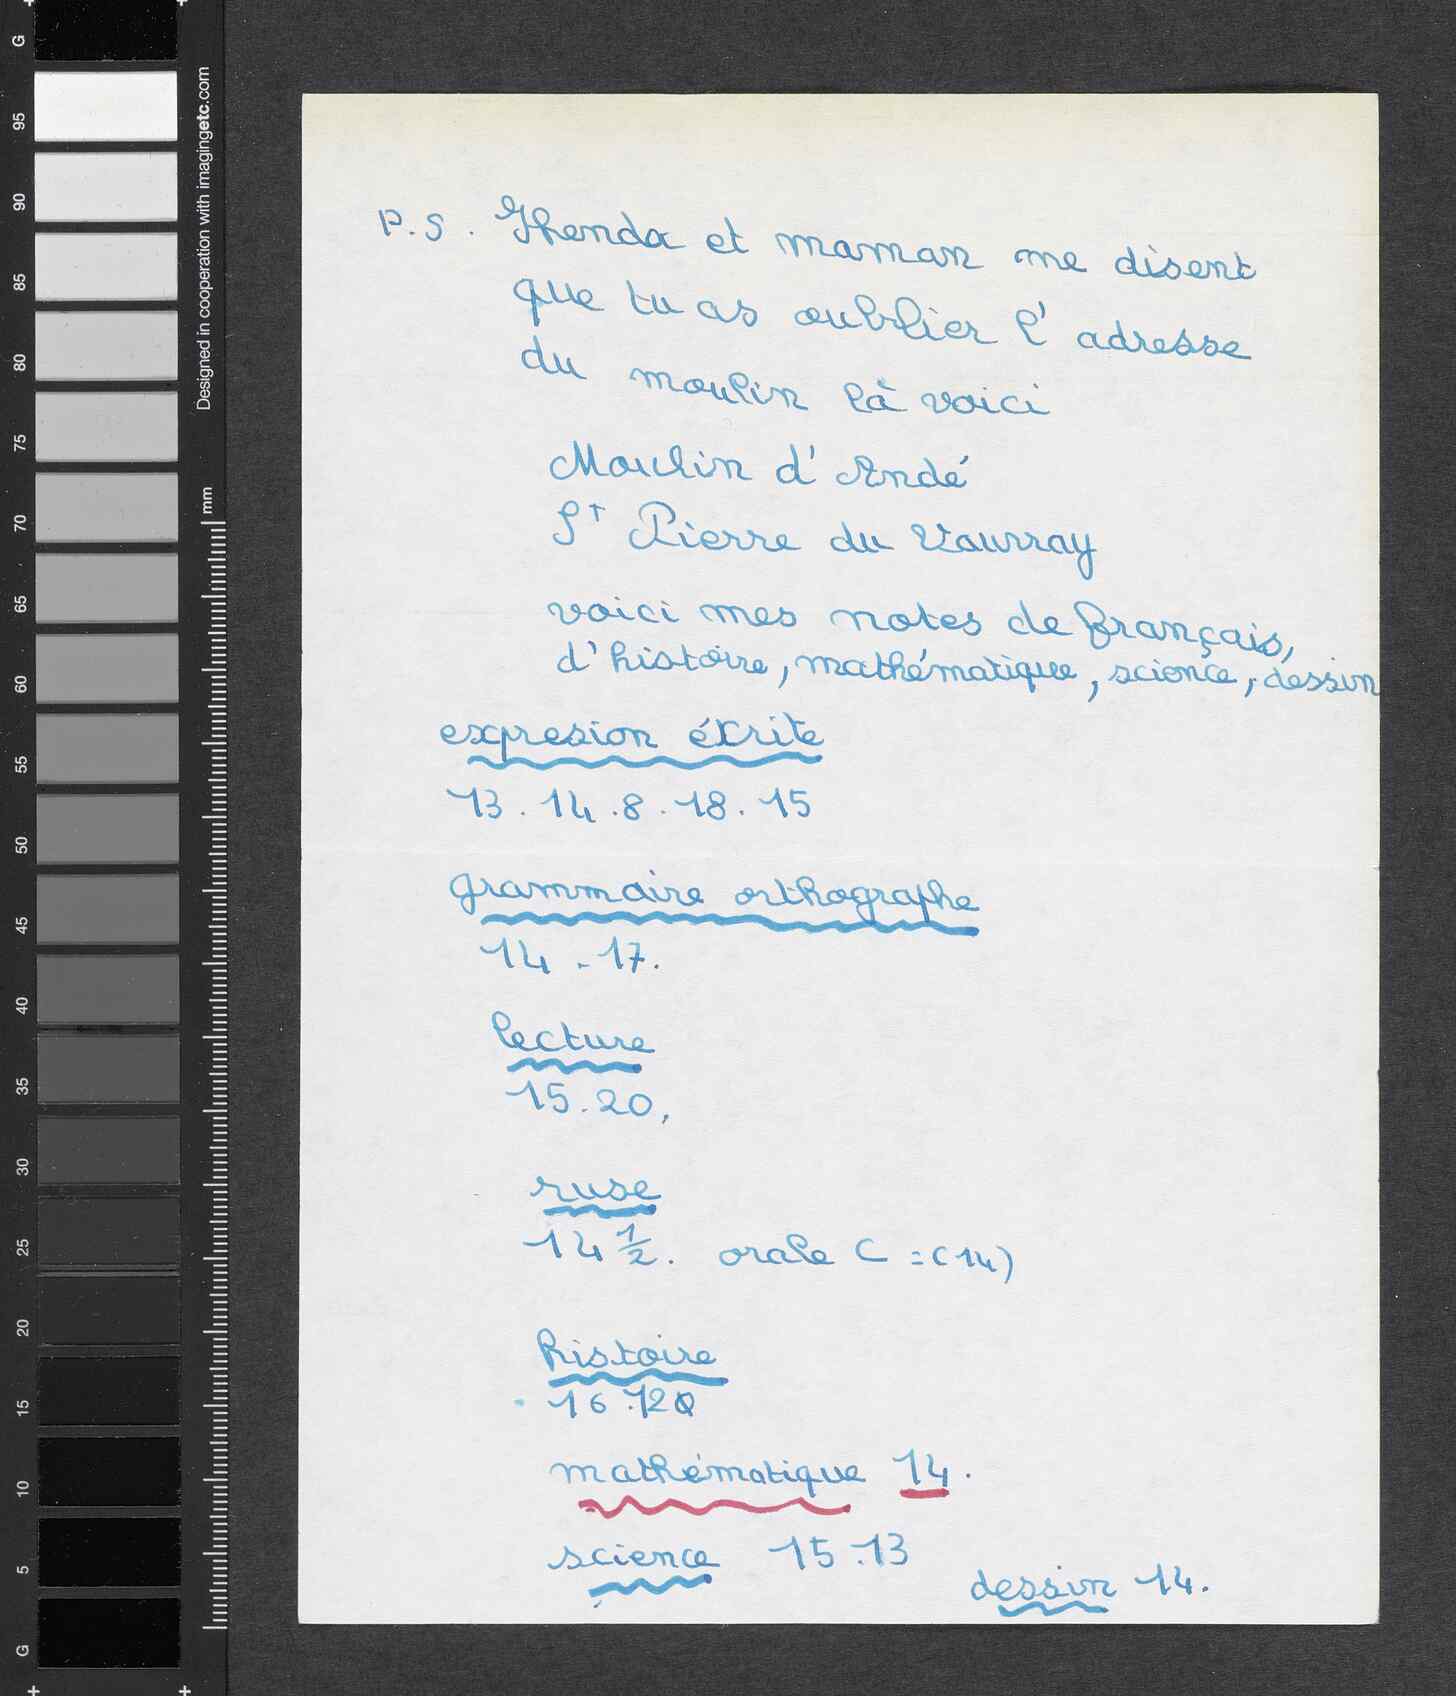 G
95
90
85
80
75
70
65
60
55
50
45
40
35
30
25
20
15
10
5
G
Designed in cooperation with imagingetc.com
mm
P.S. Ghenda et maman me disent
que tu as oublier l'adresse
du moulin là voici
Moulin d'Andé
St Pierre du Vauvray
voici mes notes de français,
d'histoire, mathématique, science, dessin
expresion éxrite
13. 14. 8. 18. 15
grammaire orthographe
14 - 17.
lecture
15. 20,
ruse
14 1/2. orale C = (14)
histoire
16. 120
mathématique 14.
science 15. 13
dessin 14.